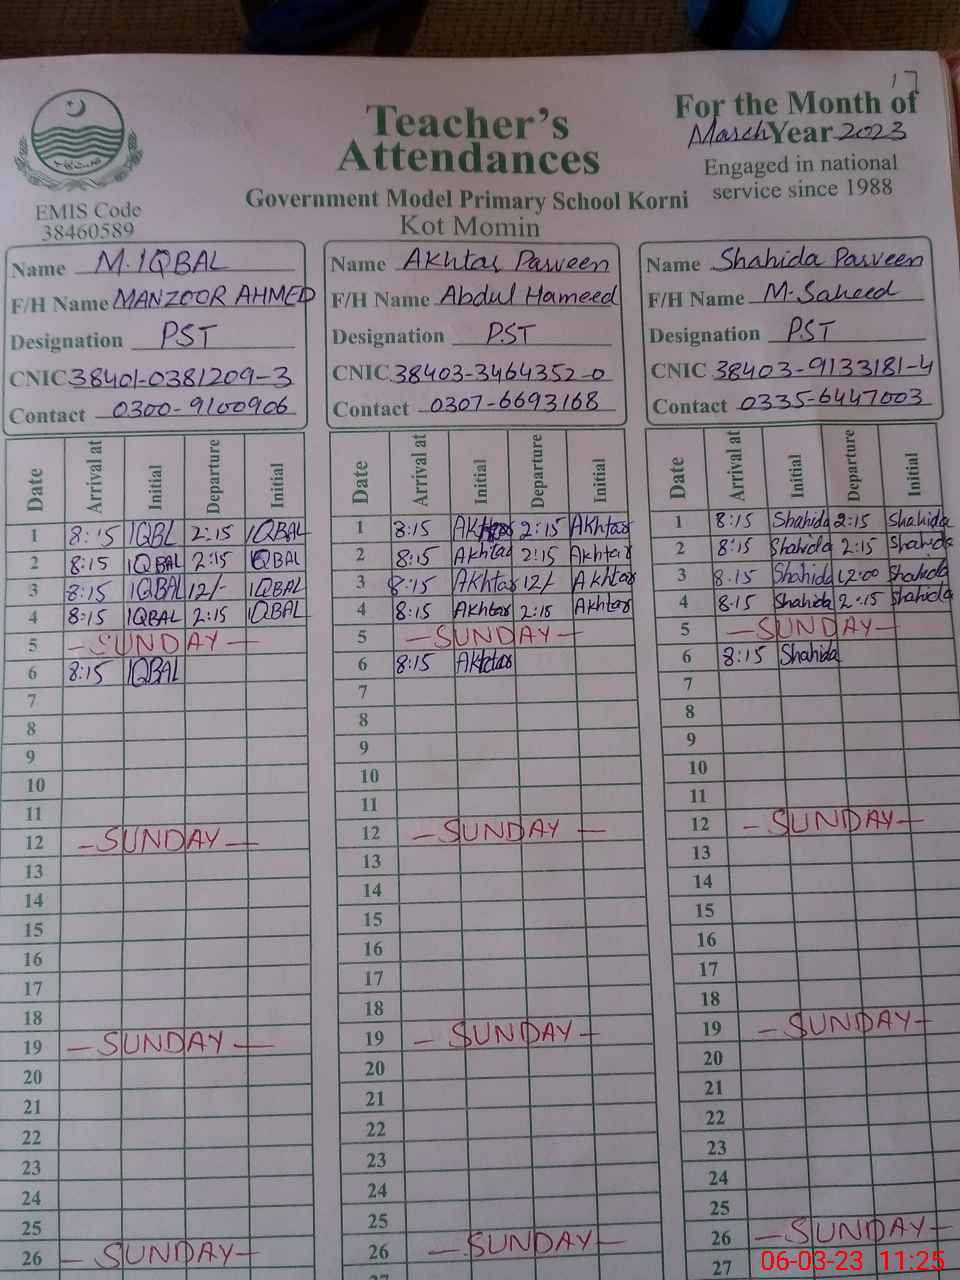 17
Teacher's
Attendances
For the Month of
March Year 2023
Engaged in national
service since 1988
Government Model Primary School Korni
Kot Momin
EMIS Code
38460589
Name M. IQBAL
F/H Name MANZOOR AHMED
Designation PST
CNIC 38401-0381209-3
Contact 0300-9100906
Name Akhtar Parveen
F/H Name Abdul Hameed
Designation P.ST
CNIC 38403-3464352-0
Contact 0307-6693168
Name Shahida Parveen
F/H Name M. Saheed
Designation P.ST
CNIC 38403-9133181-4
Contact 0335-6447003
Date Arrival at Initial Departure Initial
1 8:15 IQBL 2:15 IQBAL
2 8:15 IQBAL 2:15 IQBAL
3 8:15 IQBAL 12/- IQBAL
4 8:15 IQBAL 2:15 IQBAL
5 -SUNDAY-
6 8:15 IQBAL
7
8
9
10
11
12 -SUNDAY-
13
14
15
16
17
18
19 -SUNDAY-
20
21
22
23
24
25
26 -SUNDAY-
Date Arrival at Initial Departure Initial
1 8:15 Akhtar 2:15 Akhtar
2 8:15 Akhtar 2:15 Akhtar
3 8:15 Akhtar 12/ Akhtar
4 8:15 Akhtar 2:15 Akhtar
5 -SUNDAY-
6 8:15 Akhtar
7
8
9
10
11
12 -SUNDAY-
13
14
15
16
17
18
19 -SUNDAY-
20
21
22
23
24
25
26 -SUNDAY-
27
Date Arrival at Initial Departure Initial
1 8:15 Shahida 2:15 Shahida
2 8:15 Shahida 2:15 Shahida
3 8.15 Shahida 12:00 Shahida
4 8.15 Shahida 2:15 Shahida
5 -SUNDAY-
6 8:15 Shahida
7
8
9
10
11
12 -SUNDAY-
13
14
15
16
17
18
19 -SUNDAY-
20
21
22
23
24
25
26 -SUNDAY-
27
06-03-23 11:25